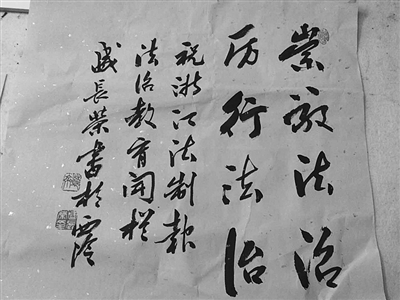 崇敬法治
厉行法治
祝浙江法制报
法治教育开栏
戚长荣书於西陵